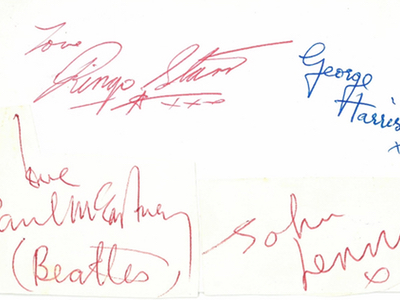 love
Ringo Starr
xxxo
George
Harris
x
love
Paul McCartney
(Beatles)
John
Lenn
x